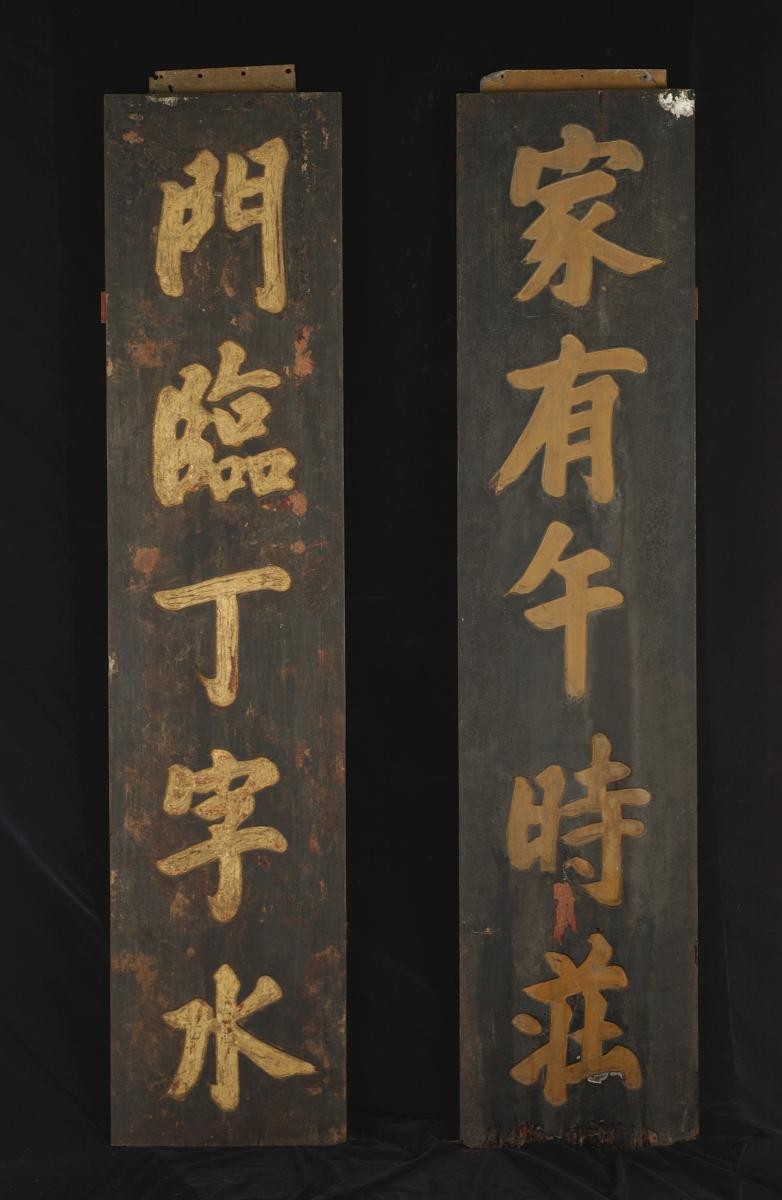 家有午時莊
門臨丁字水